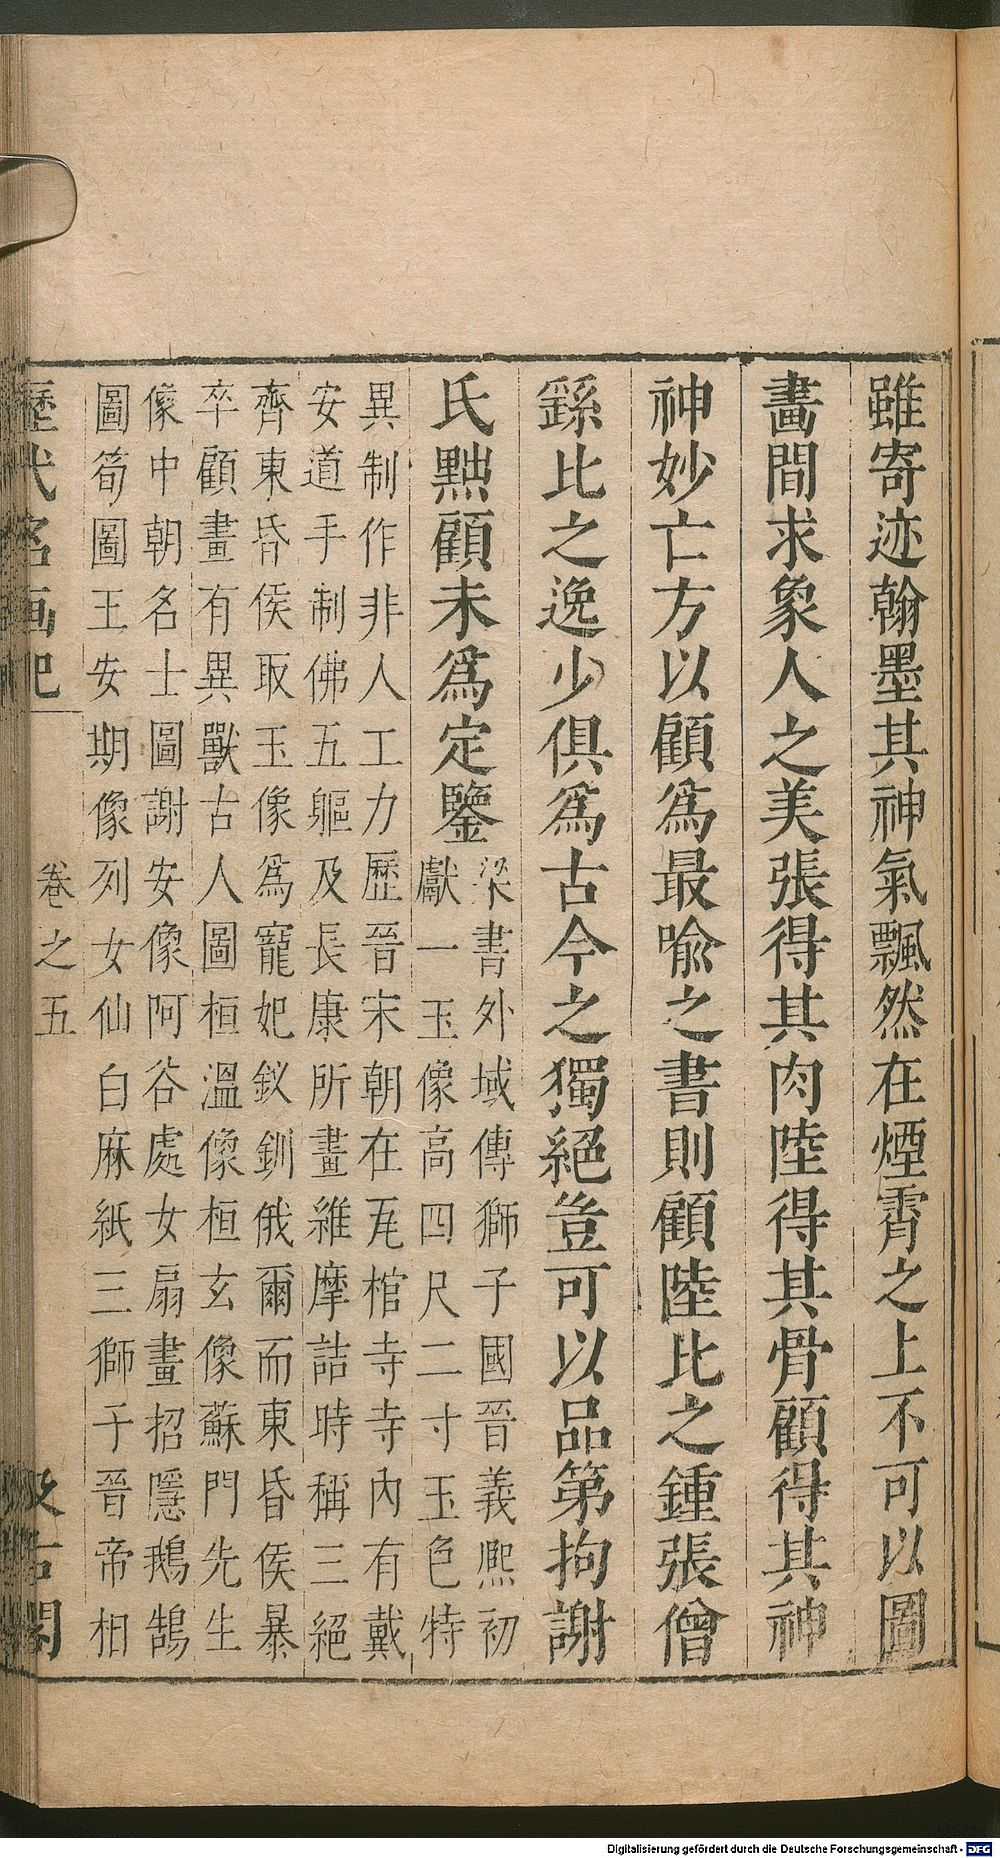 雖寄迹翰墨其神氣飄然在煙霄之上不可以圖
畫間求象人之美張得其肉陸得其骨顧得其神
神妙亡方以顧爲最喻之書則顧陸比之鍾張僧
繇比之逸少俱爲古今之獨絕豈可以品第拘謝
氏黜顧未爲定鑒
梁書外域傳獅子國晉義熙初
獻一玉像高四尺二寸玉色特
異制作非人工力歷晉宋朝在瓦棺寺寺內有戴
安道手制佛五軀及長康所畫維摩詰時稱三絕
齊東昏侯取玉像爲寵妃釵釧俄爾而東昏侯暴
卒顧畫有異獸古人圖桓溫像桓玄像蘇門先生
像中朝名士圖謝安像阿谷處女扇畫招隱鵝鵠
圖筍圖王安期像列女仙白麻紙三獅子晉帝相
歷代名画記
卷之五
汲古閣
Digitalisierung gefördert durch die Deutsche Forschungsgemeinschaft - DFG